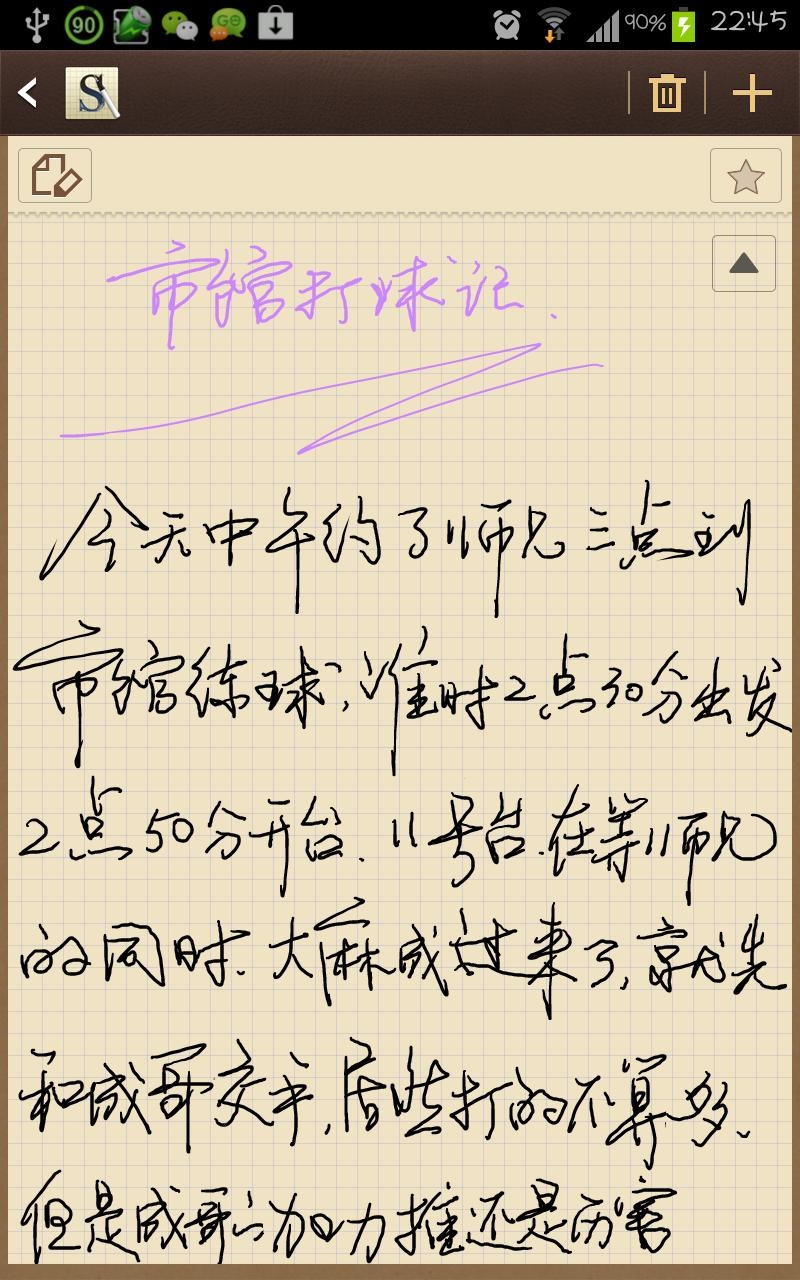 90 GO 90% 22:45
S
市馆打球记.
今天中午约了师兄三点到
市馆练球,准时2点30分出发
2点50分开台.11号台.在等师兄
的同时.大麻成过来了,就先
和成哥交手,居然打的不算多.
但是成哥的加力推还是厉害